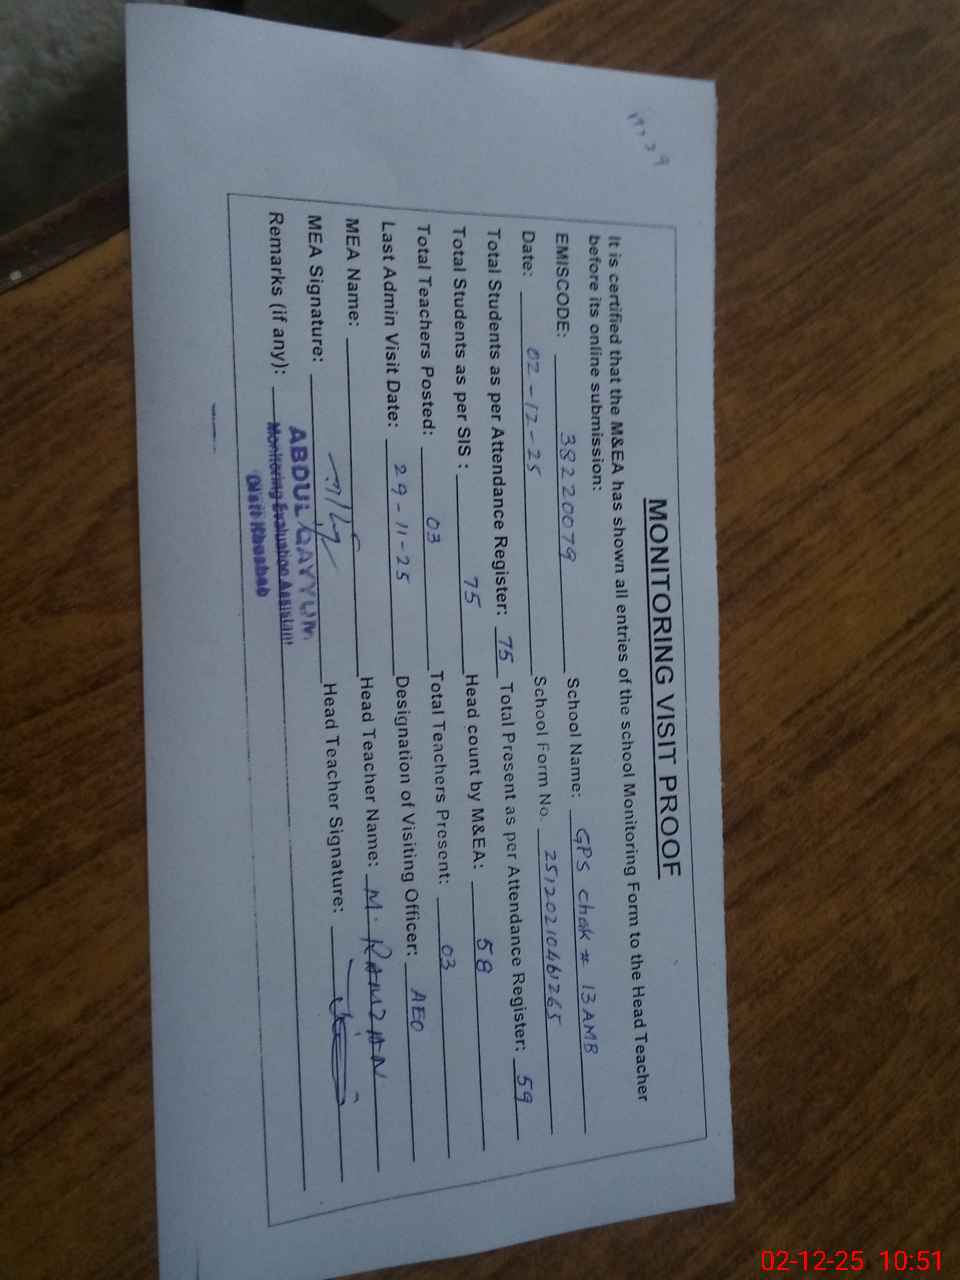 MONITORING VISIT PROOF
It is certified that the M&EA has shown all entries of the school Monitoring Form to the Head Teacher
before its online submission:
EMISCODE: 38220079 School Name: GPS Chak # 13AMB
Date: 02-12-25 School Form No. 25120210461265
Total Students as per Attendance Register: 75 Total Present as per Attendance Register: 59
Total Students as per SIS : 75 Head count by M&EA: 58
Total Teachers Posted: 03 Total Teachers Present: 03
Last Admin Visit Date: 29-11-25 Designation of Visiting Officer: AEO
MEA Name: Head Teacher Name: M. RAMZAN
MEA Signature: Head Teacher Signature:
Remarks (if any):
ABDUL QAYYUM
Monitoring Evaluation Assistant
Distt Khushab
02-12-25 10:51